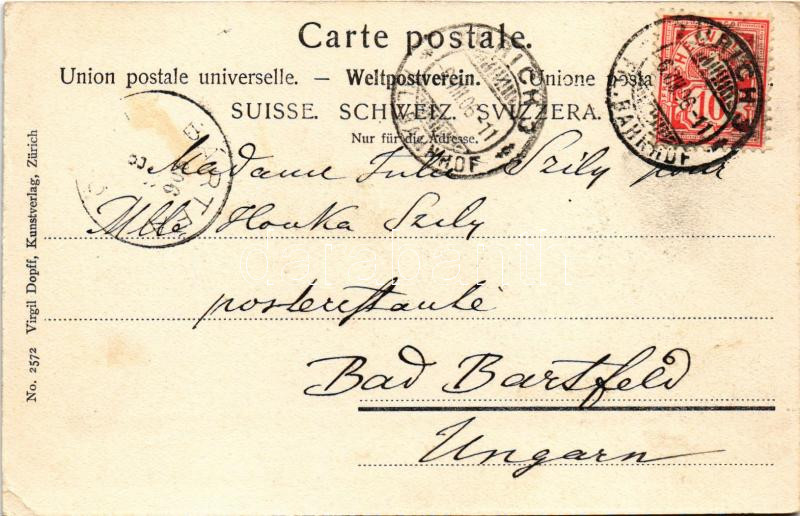 Carte postale.
Union postale universelle. — Weltpostverein. — Unione posta
SUISSE. SCHWEIZ. SVIZZERA.
Nur für die Adresse.
Madame Szily pour
Mlle Ilonka Szily
posterestante
Bad Bartfeld
Ungarn
No. 2572 Virgil Dopff, Kunstverlag, Zürich
ZÜRICH 3
BAHNHOF
10
BÁRTFA